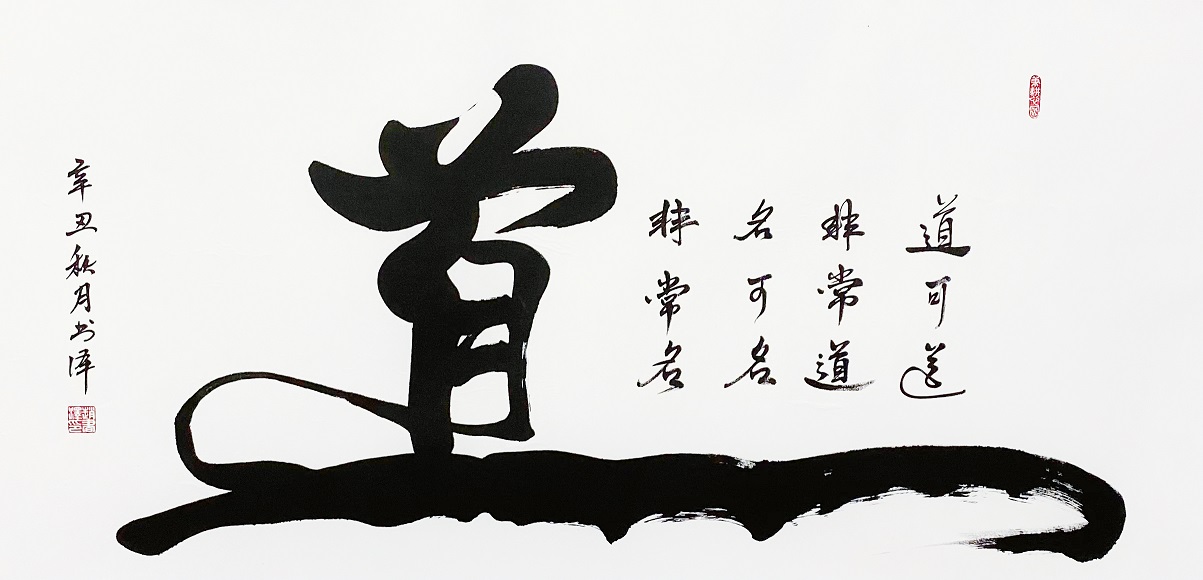 道可道
非常道
名可名
非常名
道
辛丑秋月书泽